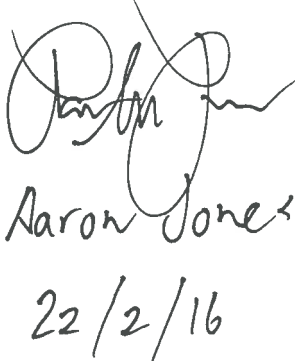 Aaron Jones
22/2/16